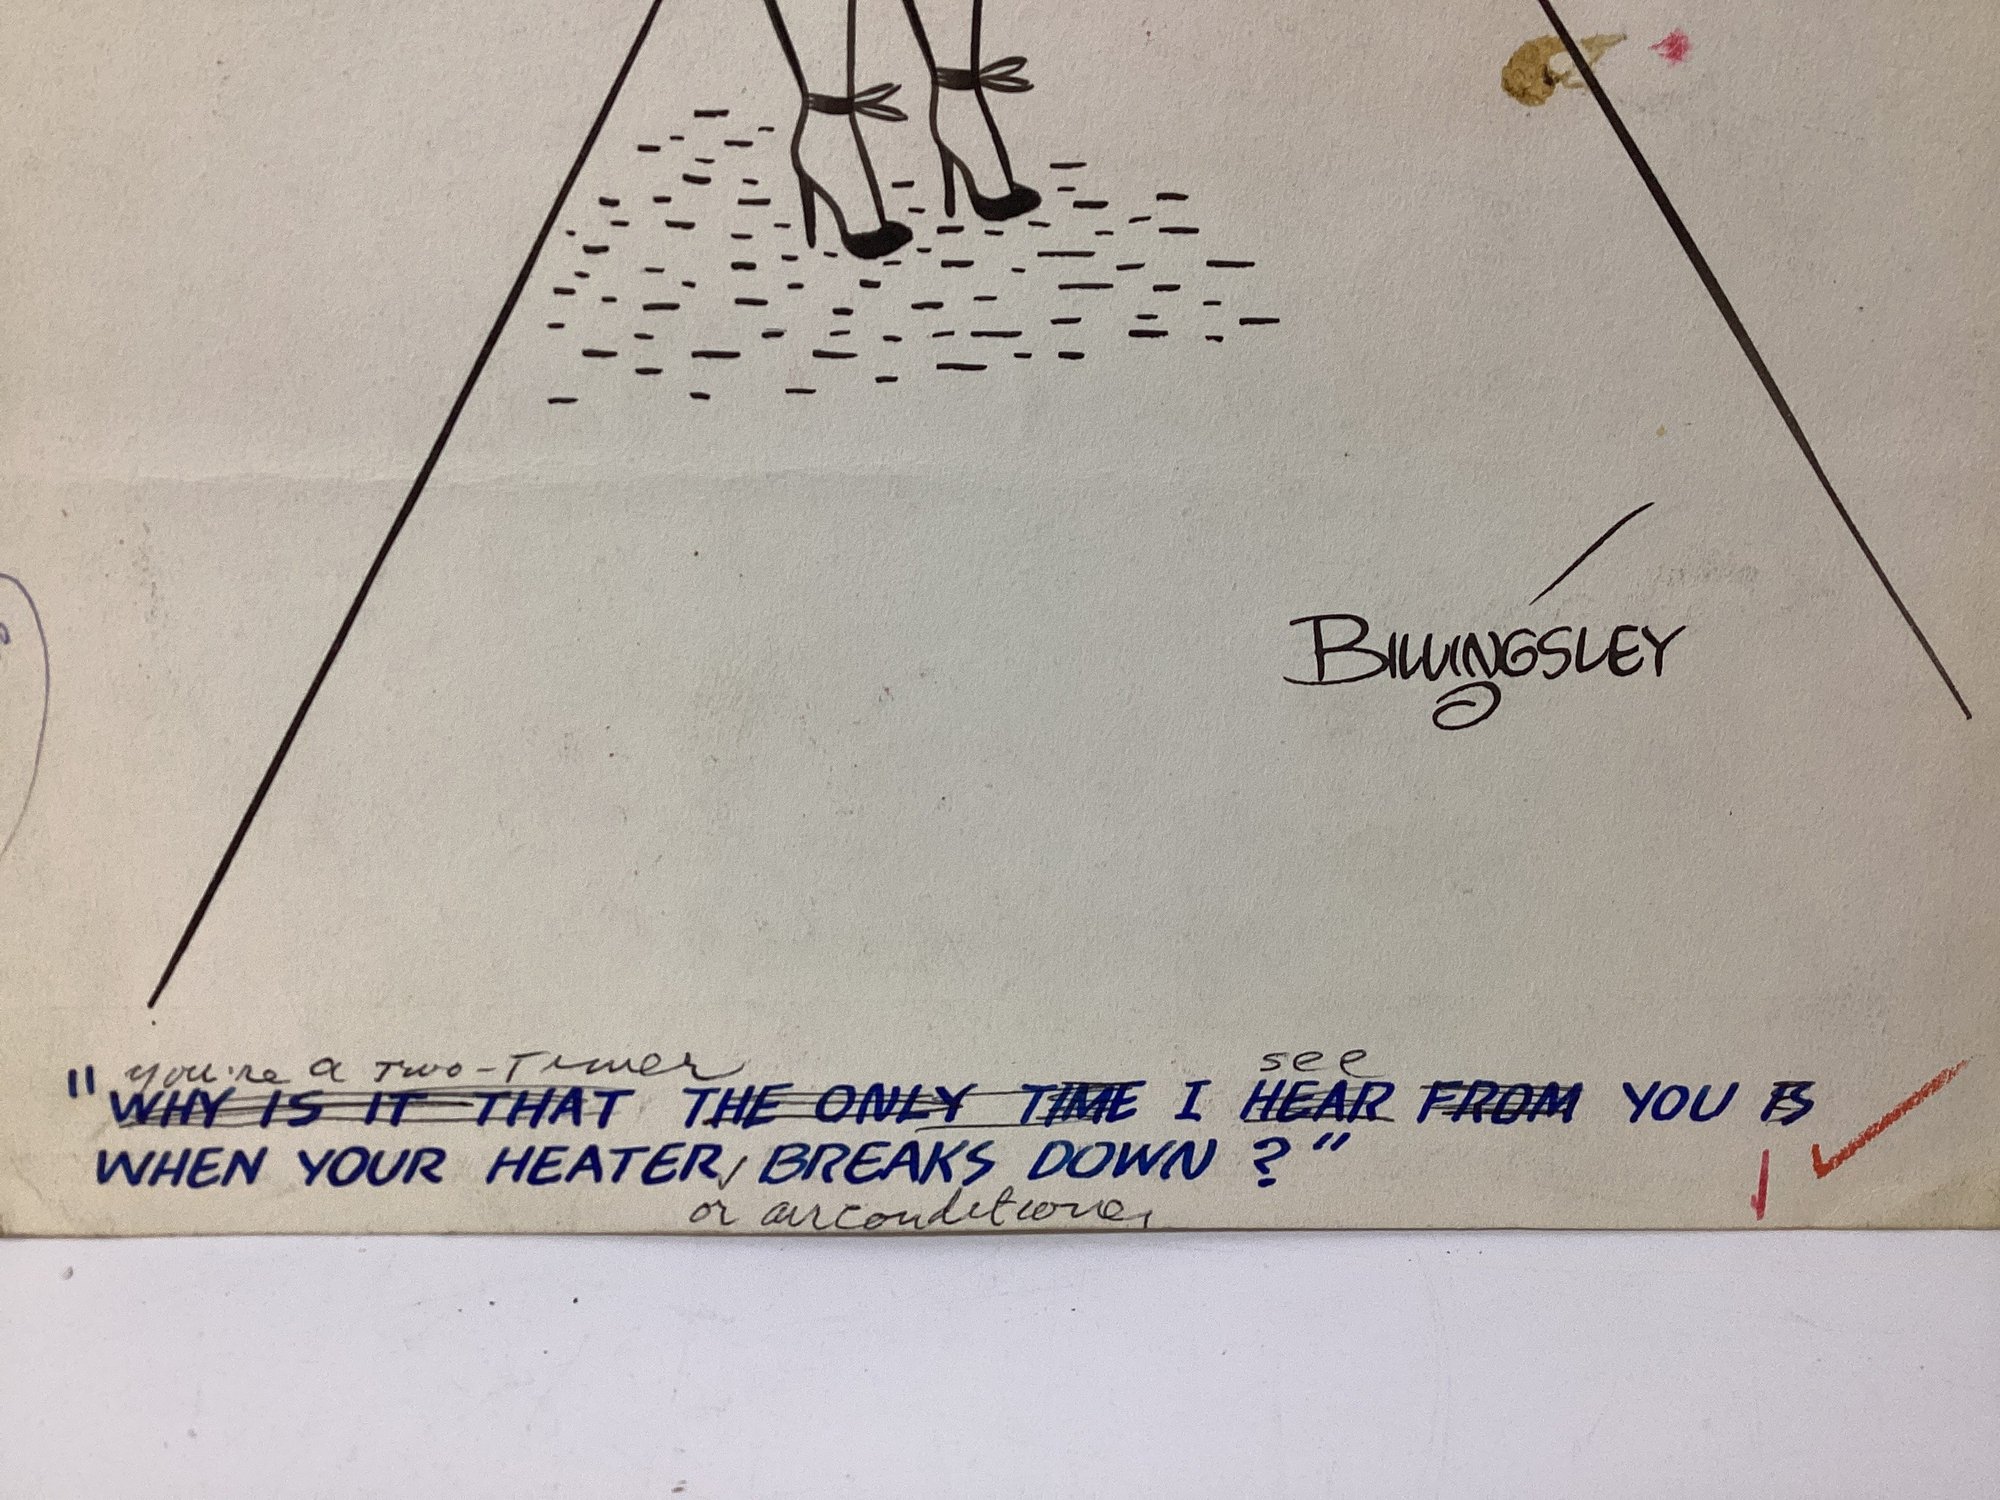 BILLINGSLEY
you're a two-timer
see
"WHY IS IT THAT THE ONLY TIME I HEAR FROM YOU IS
WHEN YOUR HEATER/BREAKS DOWN?"
or airconditioner